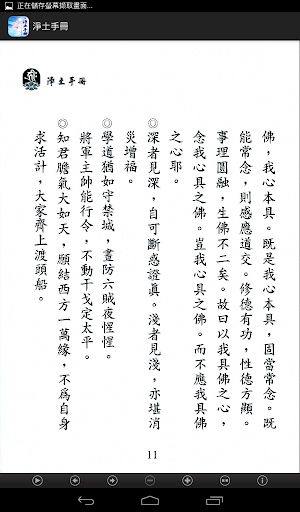 正在儲存螢幕擷取畫面...
淨土手冊
淨土手冊
佛，我心本具。既是我心本具，固當常念。既
能常念，則感應道交。修德有功，性德方顯。
事理圓融，生佛不二矣。故曰以我具佛之心，
念我心具之佛。豈我心具之佛。而不應我具佛
之心耶。
◎深者見深，自可斷惑證真。淺者見淺，亦堪消
災增福。
◎學道猶如守禁城，晝防六賊夜惺惺。
將軍主帥能行令，不動干戈定太平。
◎知君膽氣大如天，願結西方一萬緣，不為自身
求活計，大家齊上渡頭船。
11